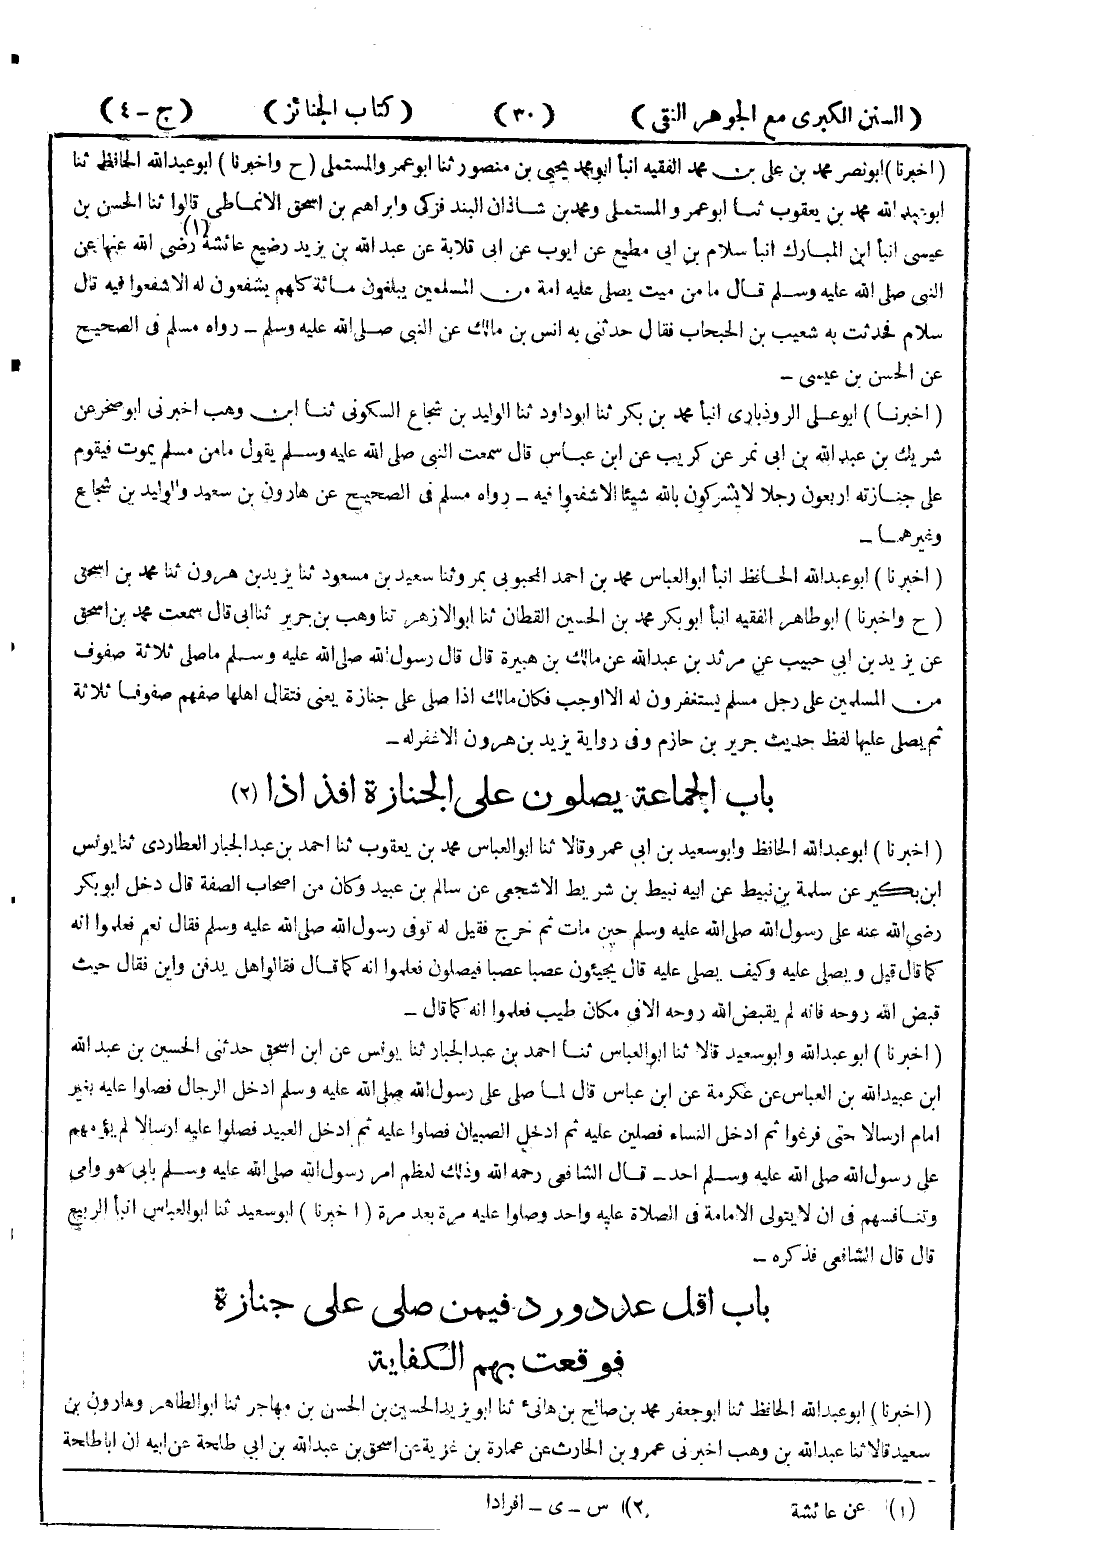 (السنن الكبرى مع الجوهر النقى) (٣٠) (كتاب الجنائز) (ج - ٤)
(اخبرنا) ابونصر محمد بن على بن محمد الفقيه انبأ ابومحمد يحيى بن منصور ثنا ابوعمر والمستملى (ح واخبرنا) ابوعبدالله الحافظ ثنا
ابوعبد الله محمد بن يعقوب ثنا ابوعمر و المستملى ومحمد بن شاذان البند فركى وابراهيم بن اسحق الانماطى قالوا ثنا الحسن بن
عيسى انبأ ابن المبارك انبأ سلام بن ابى مطيع عن ايوب عن ابى قلابة عن عبد الله بن يزيد رضيع عائشة (١) رضى الله عنها عن
النبى صلى الله عليه وسلم قال ما من ميت يصلى عليه امة من المسلمين يبلغون مائة كلهم يشفعون له الا شفعوا فيه قال
سلام فحدثت به شعيب بن الحبحاب فقال حدثنى به انس بن مالك عن النبى صلى الله عليه وسلم - رواه مسلم فى الصحيح
عن الحسن بن عيسى -
(اخبرنا) ابوعلى الروذبارى انبأ محمد بن بكر ثنا ابوداود ثنا الوليد بن شجاع السكونى ثنا ابن وهب اخبرنى ابوصخرعن
شريك بن عبد الله بن ابى نمر عن كريب عن ابن عباس قال سمعت النبى صلى الله عليه وسلم يقول مامن مسلم يموت فيقوم
على جنازته اربعون رجلا لايشركون بالله شيئا الاشفعوا فيه - رواه مسلم فى الصحيح عن هارون بن سعيد والوليد بن شجاع
وغيرهما -
(اخبرنا) ابوعبدالله الحافظ انبأ ابوالعباس محمد بن احمد المحبوبى بمر وثنا سعيد بن مسعود ثنا يزيدبن هرون ثنا محمد بن اسحق
(ح واخبرنا) ابوطاهر الفقيه انبأ ابوبكر محمد بن الحسين القطان ثنا ابوالازهر ثنا وهب بن جرير ثنا ابى قال سمعت محمد بن اسحق
عن يزيد بن ابى حبيب عن مرثد بن عبدالله عن مالك بن هبيرة قال قال رسول الله صلى الله عليه وسلم ماصلى ثلاثة صفوف
من المسلمين على رجل مسلم يستغفرون له الااوجب فكان مالك اذا صلى على جنازة يعنى فتقال اهلها صفهم صفوفا ثلاثة
ثم يصلى عليها لفظ حديث جرير بن حازم وفى رواية يزيد بن هرون الاغفرله -
باب الجماعة يصلون على الجنازة افذاذا (٢)
(اخبرنا) ابوعبدالله الحافظ وابوسعيد بن ابى عمر وقالا ثنا ابوالعباس محمد بن يعقوب ثنا احمد بن عبدالجبار العطاردى ثنا يونس
ابن بكير عن سلمة بن نبيط عن ابيه نبيط بن شريط الاشجعى عن سالم بن عبيد وكان من اصحاب الصفة قال دخل ابوبكر
رضى الله عنه على رسول الله صلى الله عليه وسلم حين مات ثم خرج فقيل له توفى رسول الله صلى الله عليه وسلم فقال نعم فعلموا انه
كما قال قيل و يصلى عليه وكيف يصلى عليه قال يجيئون عصبا عصبا فيصلون فعلموا انه كما قال فقالوا هل يدفن واين فقال حيث
قبض الله روحه فانه لم يقبض الله روحه الافى مكان طيب فعلموا انه كما قال -
(اخبرنا) ابوعبدالله وابوسعيد قالا ثنا ابوالعباس ثنا احمد بن عبدالجبار ثنا يونس عن ابن اسحق حدثنى الحسين بن عبدالله
ابن عبيدالله بن العباس عن عكرمة عن ابن عباس قال لما صلى على رسول الله صلى الله عليه وسلم ادخل الرجال فصلوا عليه بغير
امام ارسالا حتى فرغوا ثم ادخل النساء فصلين عليه ثم ادخل الصبيان فصلوا عليه ثم ادخل العبيد فصلوا عليه ارسالا لم يؤمهم
على رسول الله صلى الله عليه وسلم احد - قال الشافعى رحمه الله وذلك لعظم امر رسول الله صلى الله عليه وسلم بابى هو وامى
وتنافسهم فى ان لايتولى الامامة فى الصلاة عليه واحد وصلوا عليه مرة بعد مرة (اخبرنا) ابوسعيد ثنا ابوالعباس انبأ الربيع
قال قال الشافعى فذكره -
باب اقل عددورد فيمن صلى على جنازة
فوقعت بهم الكفاية
(اخبرنا) ابوعبدالله الحافظ ثنا ابوجعفر محمد بن صالح بن هانئ ثنا ابويزيدالحسين بن الحسن بن مهاجر ثنا ابوالطاهر وهارون بن
سعيد قالا ثنا عبدالله بن وهب اخبرنى عمرو بن الحارث عن عمارة بن غزية عن اسحق بن عبدالله بن ابى طلحة عن ابيه ان اباطلحة
(١) عن عائشة (٢) س - ى - افرادا